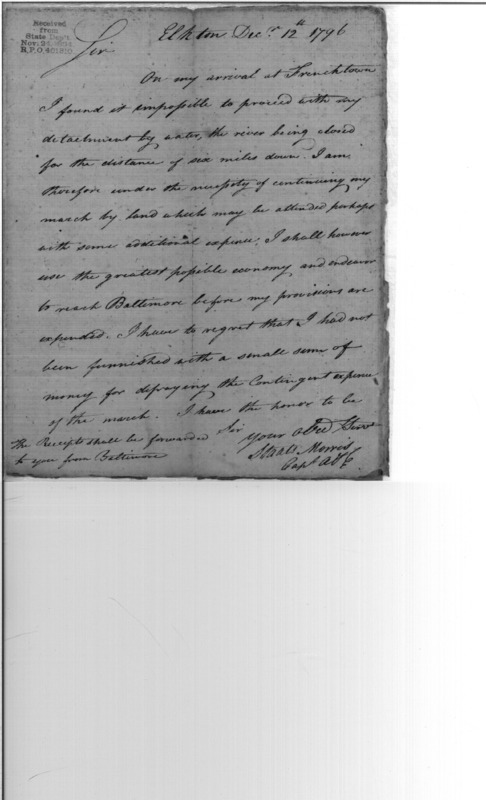 Received
from
State Dep't.
Nov. 24,
R.P.O.
Elkton Decr. 12th 1796
Sir
On my arrival at Frenchtown
I found it impossible to proceed with my
detachment by water, the river being closed
for the distance of six miles down. I am
therefore under the necessity of continuing my
march by land which may be attended perhaps
with some additional expence. I shall however
use the greatest possible economy, and endeavor
to reach Baltimore before my provisions are
expended. I have to regret that I had not
been furnished with a small sum of
money for defraying the Contingent expence
of the march. I have the honor to be
Sir
your Obed Servt
Staats Morris
Capt A&E
The Receipts shall be forwarded
to you from Baltimore